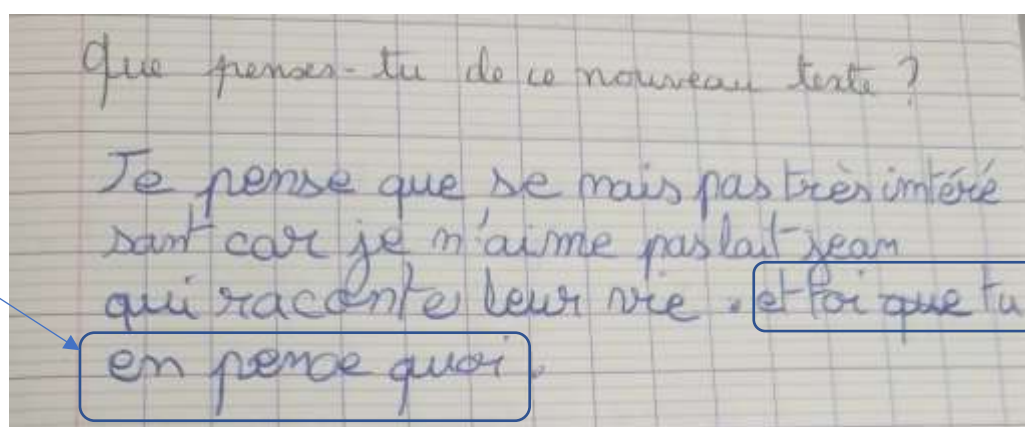 Que penses-tu de ce nouveau texte ?
Je pense que se mais pas très intéré
sant car je n'aime pas lait jean
qui raconte leur vie . et toi que tu
en pence quoi .